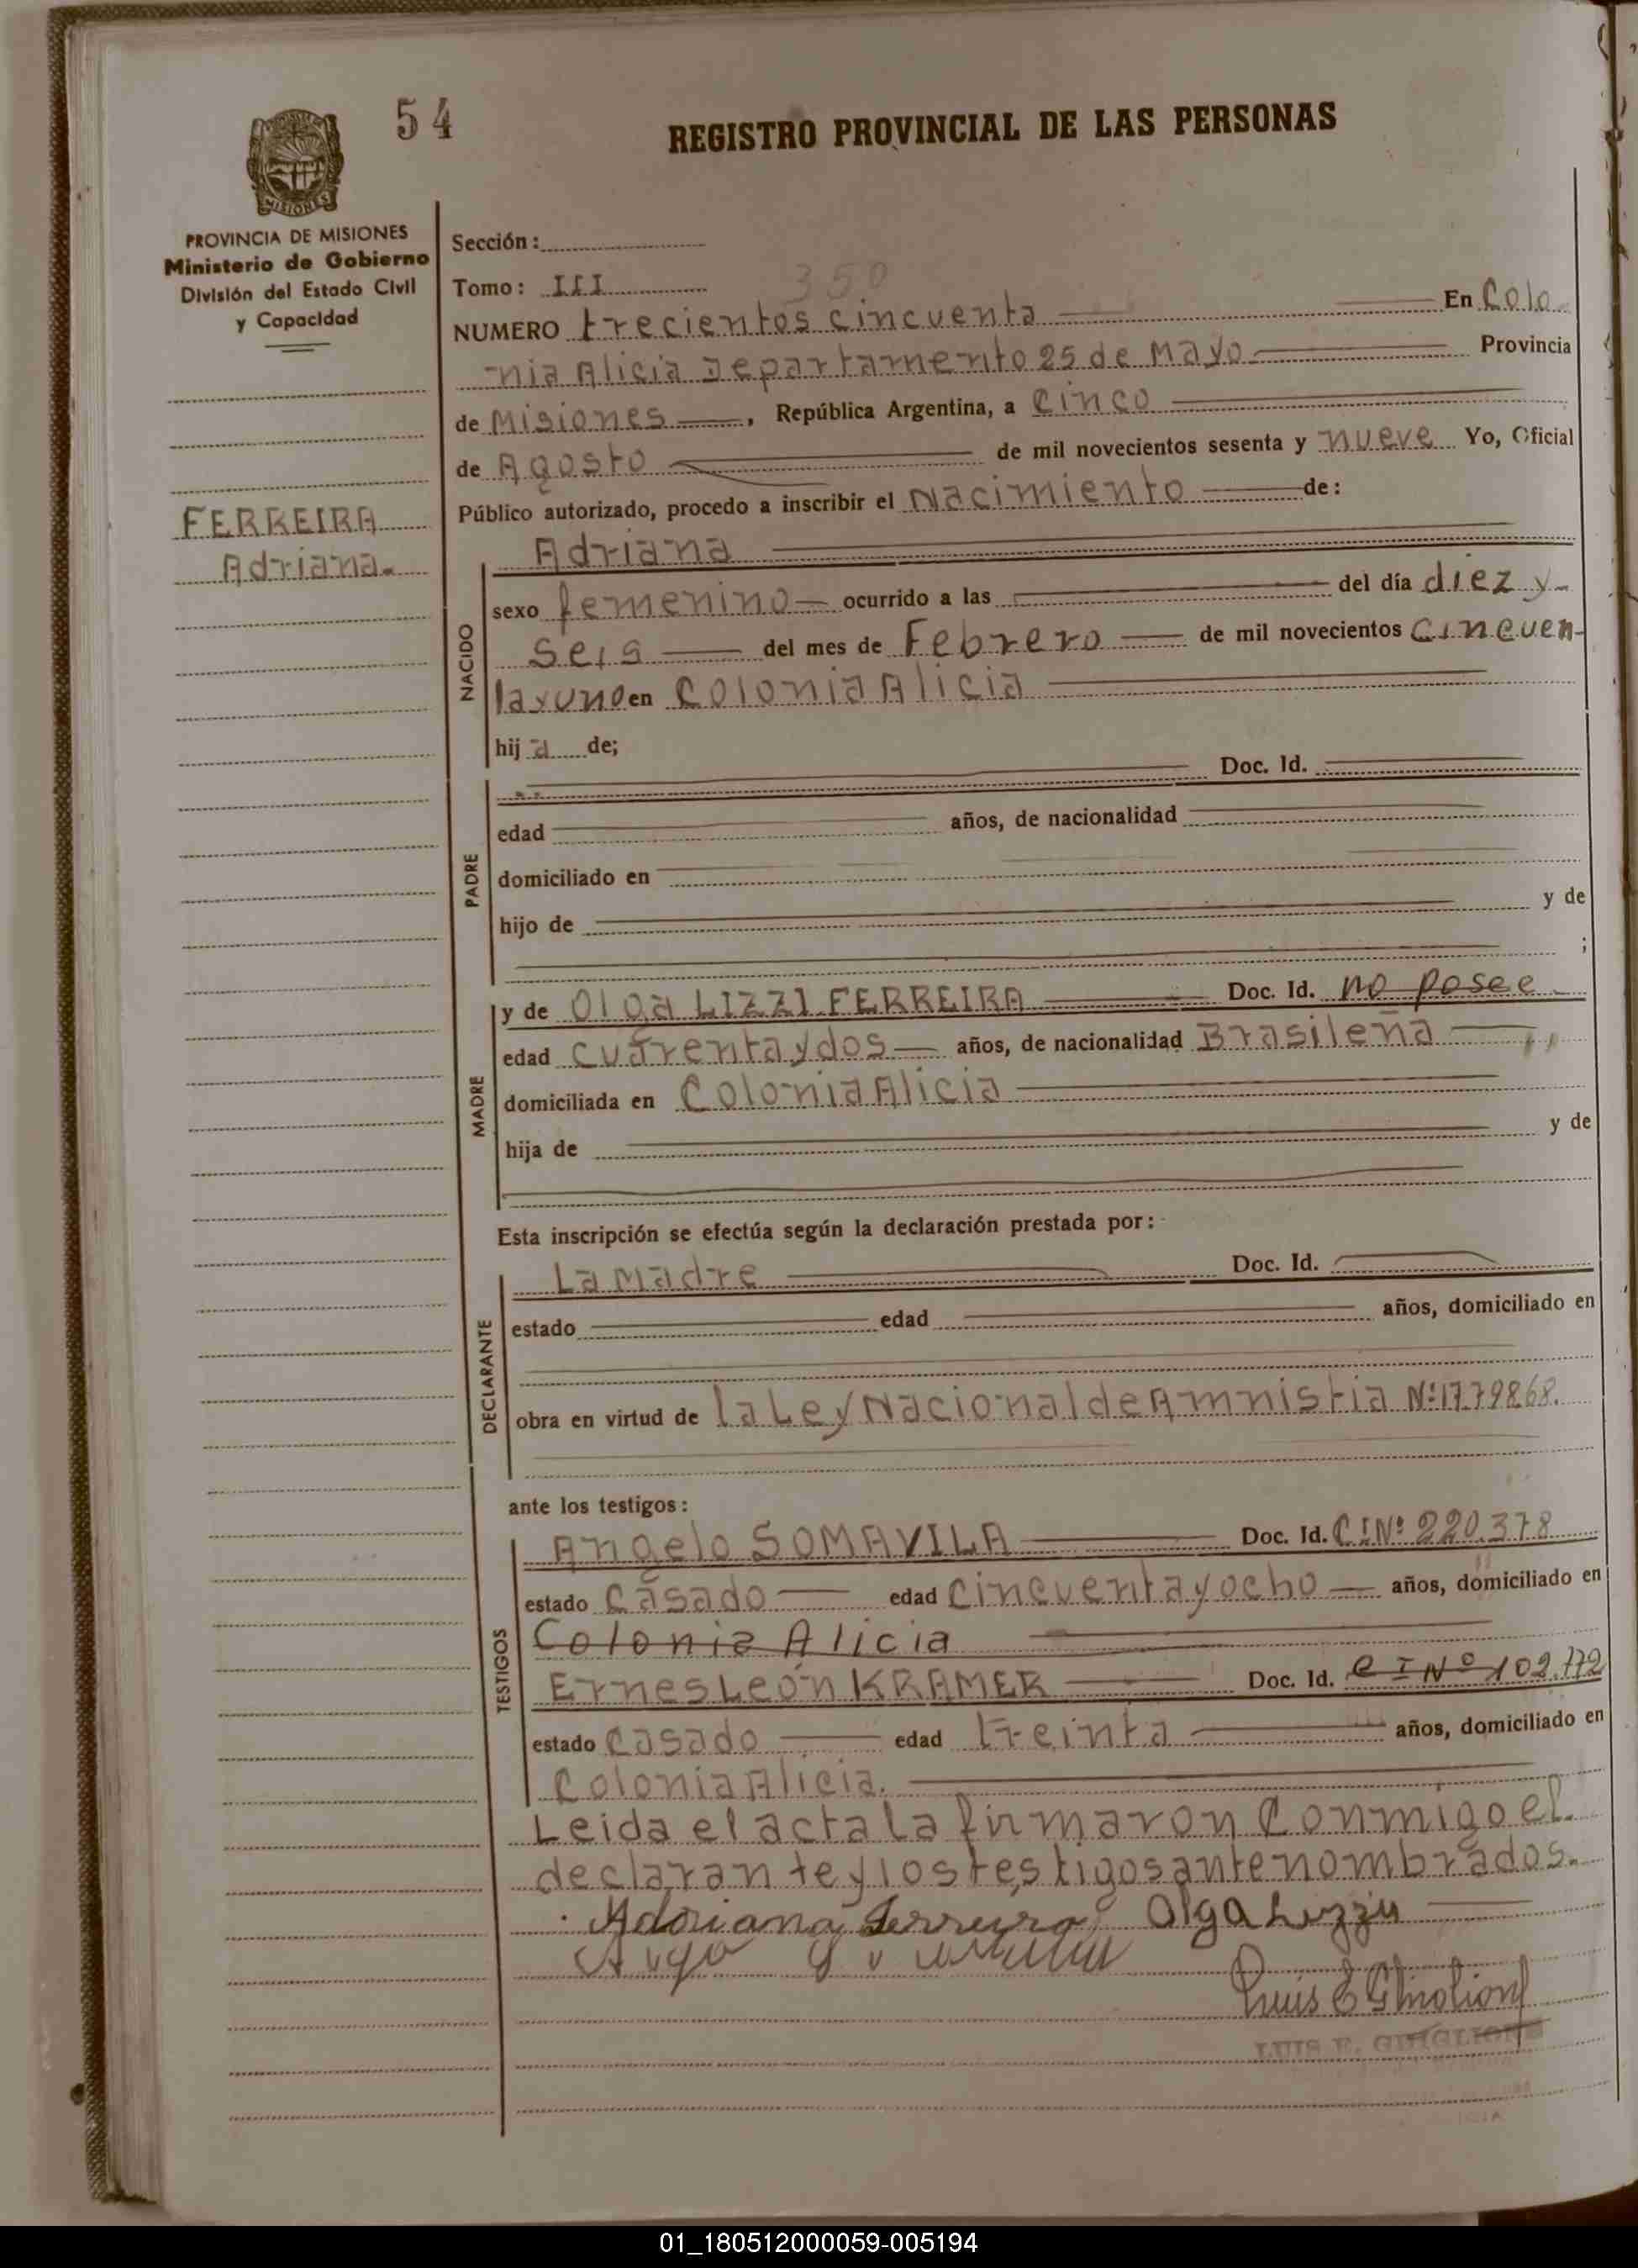 54
REGISTRO PROVINCIAL DE LAS PERSONAS
MISIONES
PROVINCIA DE MISIONES
Ministerio de Gobierno
División del Estado Civil
y Capacidad
FERREIRA
Adriana.
Sección:
Tomo: III 350
NUMERO trecientos cincuenta En Colo
nia Alicia Departamento 25 de Mayo Provincia
de Misiones, República Argentina, a Cinco
de Agosto de mil novecientos sesenta y nueve Yo, Oficial
Público autorizado, procedo a inscribir el Nacimiento de:
NACIDO
Adriana
sexo femenino ocurrido a las del día diez y
seis del mes de Febrero de mil novecientos cincuen-
ta y uno en Colonia Alicia
hija de;
PADRE
Doc. Id.
edad años, de nacionalidad
domiciliado en
hijo de y de
;
MADRE
y de Olga LIZZI FERREIRA Doc. Id. no posee
edad cuarenta y dos años, de nacionalidad Brasileña
domiciliada en Colonia Alicia
hija de y de
Esta inscripción se efectúa según la declaración prestada por:
DECLARANTE
La Madre Doc. Id.
estado edad años, domiciliado en
obra en virtud de la Ley Nacional de Amnistia Nº 17.79868.
ante los testigos:
TESTIGOS
Angelo SOMAVILA Doc. Id. C I Nº 220.378
estado Casado edad Cincuenta y ocho años, domiciliado en
Colonia Alicia
Ernes León KRAMER Doc. Id. C I Nº 102.772
estado Casado edad treinta años, domiciliado en
Colonia Alicia.
Leida el acta la firmaron Conmigo el
declarante y los testigos antenombrados.
Adriana Ferreira Olga Lizzi
Luis E Ghiglione
LUIS E. GHIGLIONE
01_180512000059-005194